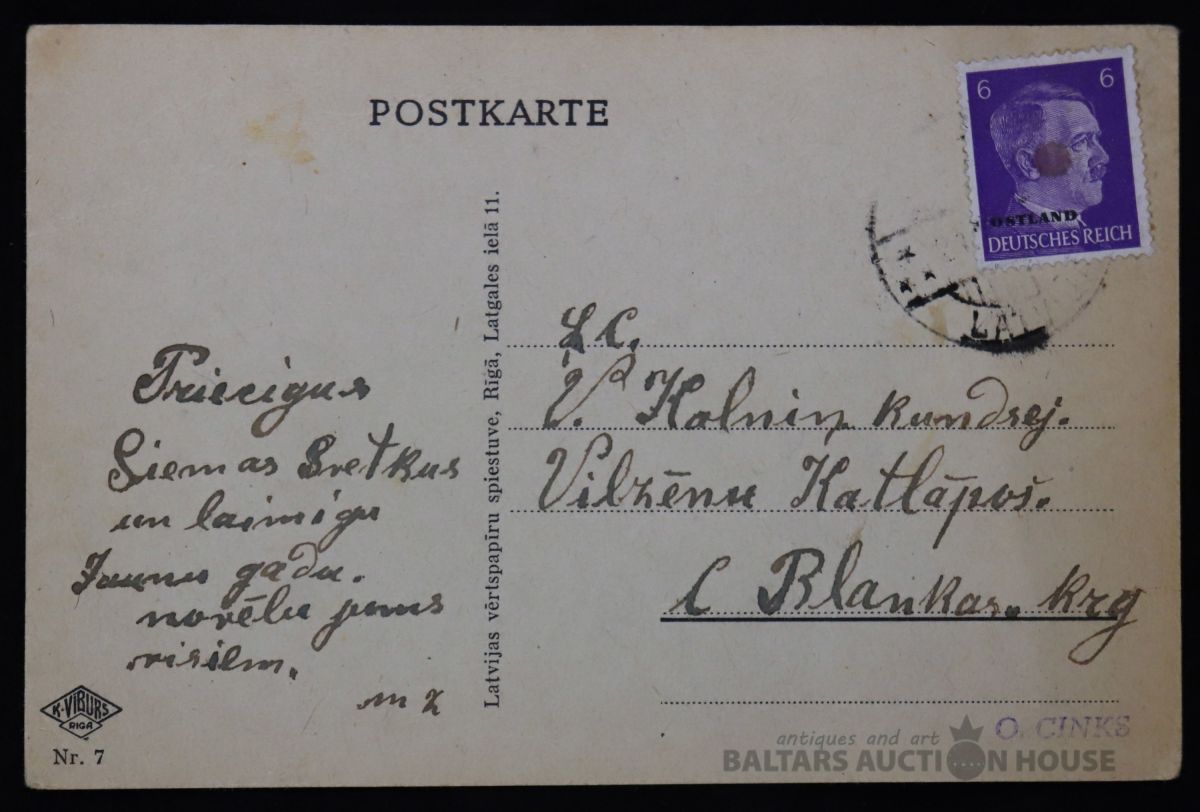 POSTKARTE
6 6
OSTLAND
DEUTSCHES REICH
Latvijas vērtspapīru spiestuve, Rīgā, Latgales ielā 11.
Priecigus
Siemas Svetkus
un laimigu
Jaunu gadu.
novēlu jums
visiem.
m Z
L C.
V. Kalniņ kundsej.
Vilzēnu Katlāpos.
C Blankas. krg
K-VIBURS
RIGA
Nr. 7
O. CINKS
antiques and art
BALTARS AUCTION HOUSE